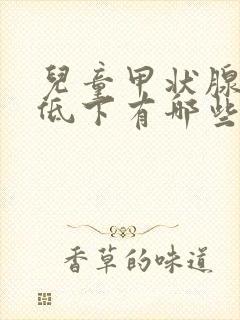 兒童甲状腺
低下有哪些
香草的味道